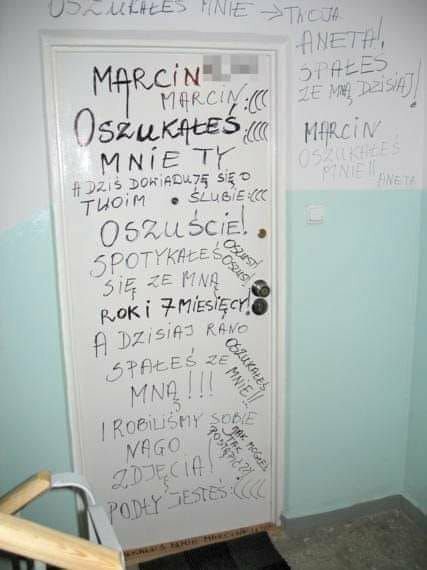 OSZUKAŁEŚ MNIE → TWOJA
ANETA!,
SPAŁEŚ
ZE MNĄ DZISIAJ!
MARCIN
OSZUKAŁEŚ
MNIE!!
ANETA
MARCIN
MARCIN :(((
OSZUKAŁEŚ :((((
MNIE TY
A DZIŚ DOWIADUJĘ SIĘ O
TWOIM ŚLUBIE :(((
OSZUŚCIE!
SPOTYKAŁEŚ
SIĘ ZE MNĄ
OSZUST!
OSZUST!
ROK I 7 MIESIĘCY!
A DZISIAJ RANO
SPAŁEŚ ZE
MNĄ!!!
OSZUKAŁEŚ
MNIE!!
I ROBILIŚMY SOBIE
NAGO
ZDJĘCIA!
JAK MOGŁEŚ
TAK
POSTĄPIĆ?!
PODŁY JESTEŚ :((((
MNIE MARCIN